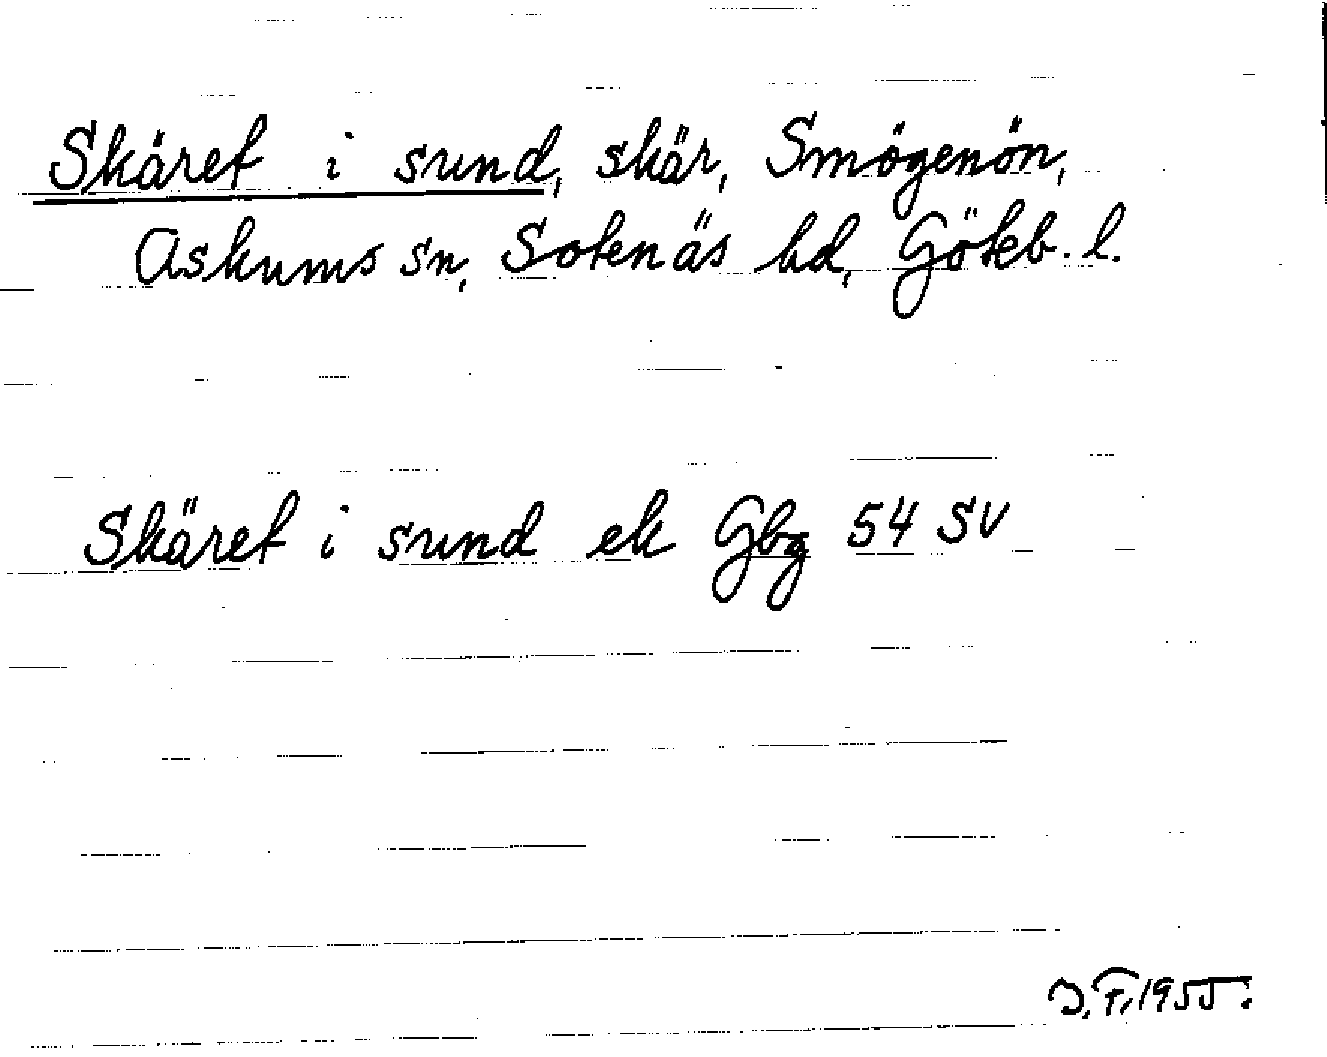 Skäret i sund, skär, Smögenön,
Askums sn, Sotenäs hd, Göteb. l.
Skäret i sund ek Gbg 54 SV
J.F. 1955.